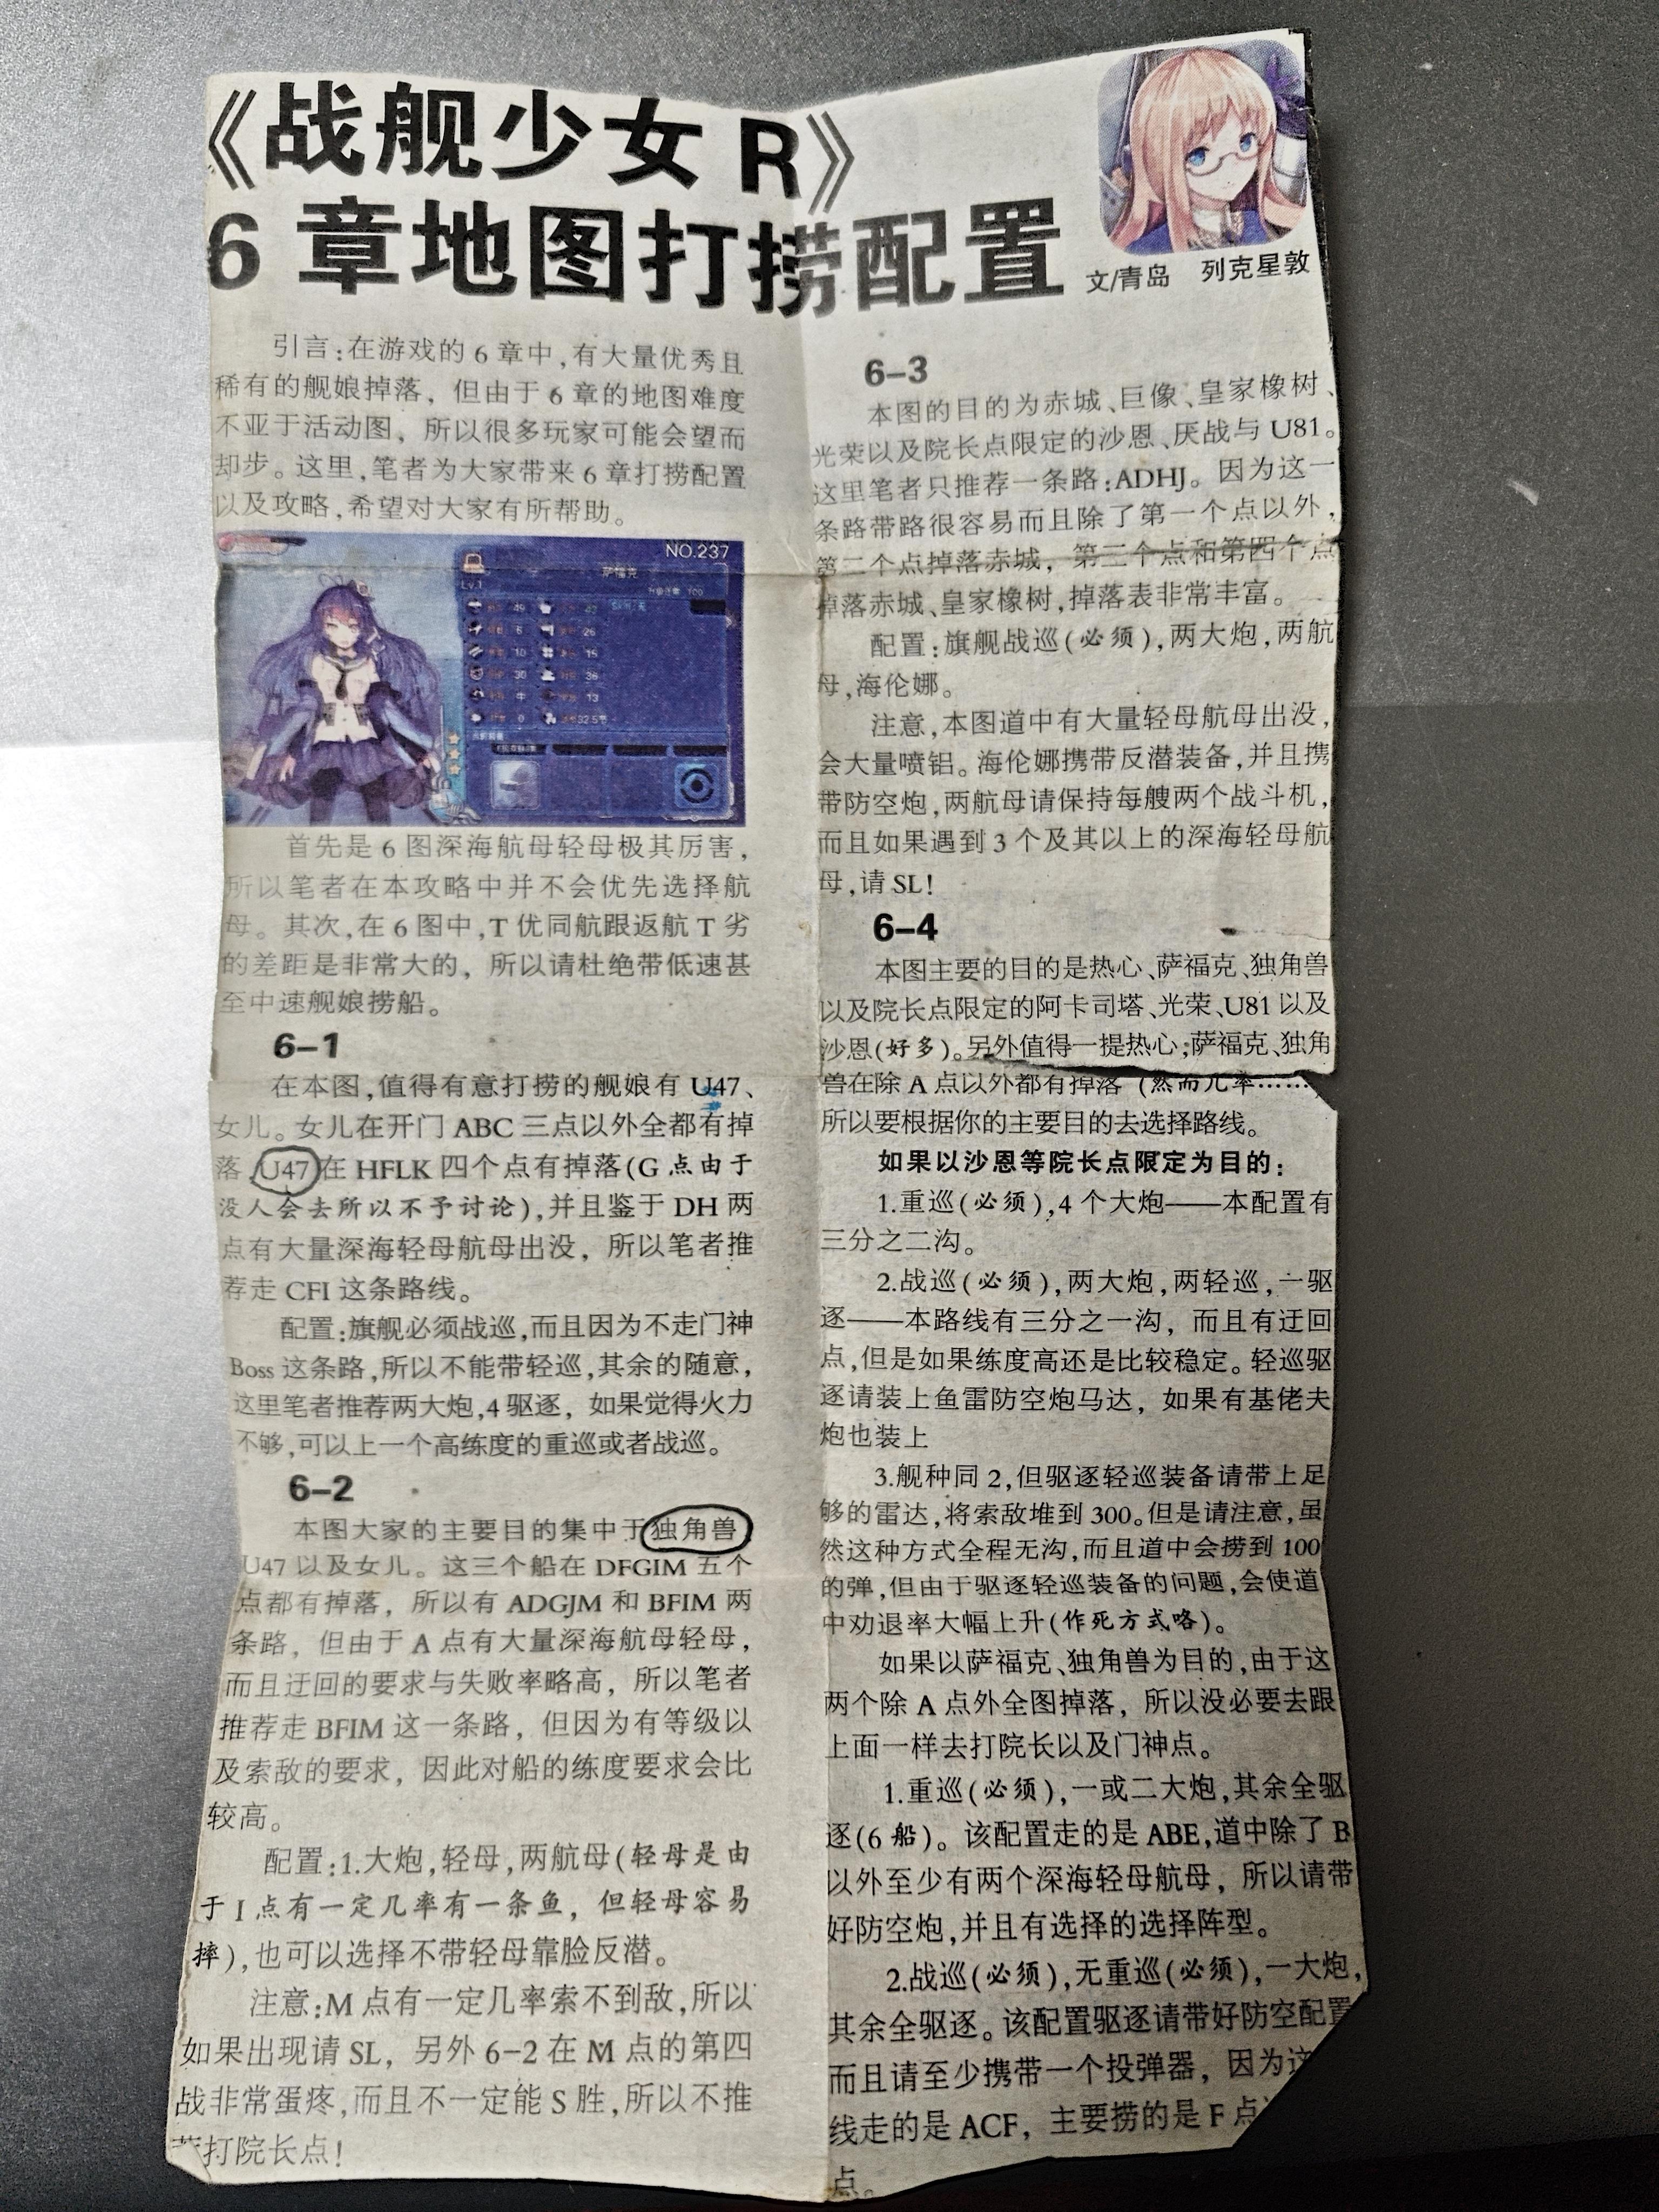 《战舰少女 R》
6 章地图打捞配置
文/青岛 列克星敦
引言:在游戏的 6 章中,有大量优秀且
稀有的舰娘掉落，但由于 6 章的地图难度
不亚于活动图，所以很多玩家可能会望而
却步。这里,笔者为大家带来 6 章打捞配置
以及攻略,希望对大家有所帮助。
NO.237
萨福克
Lv.1
首先是 6 图深海航母轻母极其厉害，
所以笔者在本攻略中并不会优先选择航
母。其次,在 6 图中,T 优同航跟返航 T 劣
的差距是非常大的，所以请杜绝带低速甚
至中速舰娘捞船。
6-1
在本图,值得有意打捞的舰娘有 U47、
女儿。女儿在开门 ABC 三点以外全都有掉
落,U47 在 HFLK 四个点有掉落(G 点由于
没人会去所以不予讨论),并且鉴于 DH 两
点有大量深海轻母航母出没，所以笔者推
荐走 CFI 这条路线。
配置:旗舰必须战巡,而且因为不走门神
Boss 这条路,所以不能带轻巡,其余的随意，
这里笔者推荐两大炮,4 驱逐，如果觉得火力
不够,可以上一个高练度的重巡或者战巡。
6-2
本图大家的主要目的集中于独角兽、
U47 以及女儿。这三个船在 DFGIM 五个
点都有掉落，所以有 ADGJM 和 BFIM 两
条路，但由于 A 点有大量深海航母轻母，
而且迂回的要求与失败率略高，所以笔者
推荐走 BFIM 这一条路，但因为有等级以
及索敌的要求，因此对船的练度要求会比
较高。
配置:1.大炮,轻母,两航母(轻母是由
于 I 点有一定几率有一条鱼，但轻母容易
摔),也可以选择不带轻母靠脸反潜。
注意:M 点有一定几率索不到敌,所以
如果出现请 SL，另外 6-2 在 M 点的第四
战非常蛋疼,而且不一定能 S 胜,所以不推
荐打院长点!
6-3
本图的目的为赤城、巨像、皇家橡树、
光荣以及院长点限定的沙恩、厌战与 U81。
这里笔者只推荐一条路:ADHJ。因为这一
条路带路很容易而且除了第一个点以外，
第二个点掉落赤城，第三个点和第四个点
掉落赤城、皇家橡树,掉落表非常丰富。
配置:旗舰战巡(必须),两大炮,两航
母,海伦娜。
注意,本图道中有大量轻母航母出没，
会大量喷铝。海伦娜携带反潜装备,并且携
带防空炮,两航母请保持每艘两个战斗机，
而且如果遇到 3 个及其以上的深海轻母航
母,请 SL!
6-4
本图主要的目的是热心、萨福克、独角兽
以及院长点限定的阿卡司塔、光荣、U81 以及
沙恩(好多)。另外值得一提热心;萨福克、独角
兽在除 A 点以外都有掉落 (然而几率……
所以要根据你的主要目的去选择路线。
如果以沙恩等院长点限定为目的:
1.重巡(必须),4 个大炮——本配置有
三分之二沟。
2.战巡(必须),两大炮,两轻巡,一驱
逐——本路线有三分之一沟，而且有迂回
点,但是如果练度高还是比较稳定。轻巡驱
逐请装上鱼雷防空炮马达，如果有基佬夫
炮也装上
3.舰种同 2,但驱逐轻巡装备请带上足
够的雷达,将索敌堆到 300。但是请注意,虽
然这种方式全程无沟,而且道中会捞到 100
的弹,但由于驱逐轻巡装备的问题,会使道
中劝退率大幅上升(作死方式咯)。
如果以萨福克、独角兽为目的,由于这
两个除 A 点外全图掉落，所以没必要去跟
上面一样去打院长以及门神点。
1.重巡(必须),一或二大炮,其余全驱
逐(6 船)。该配置走的是 ABE,道中除了 B
以外至少有两个深海轻母航母，所以请带
好防空炮,并且有选择的选择阵型。
2.战巡(必须),无重巡(必须),一大炮，
其余全驱逐。该配置驱逐请带好防空配置
而且请至少携带一个投弹器，因为这
线走的是 ACF，主要捞的是 F 点
点。